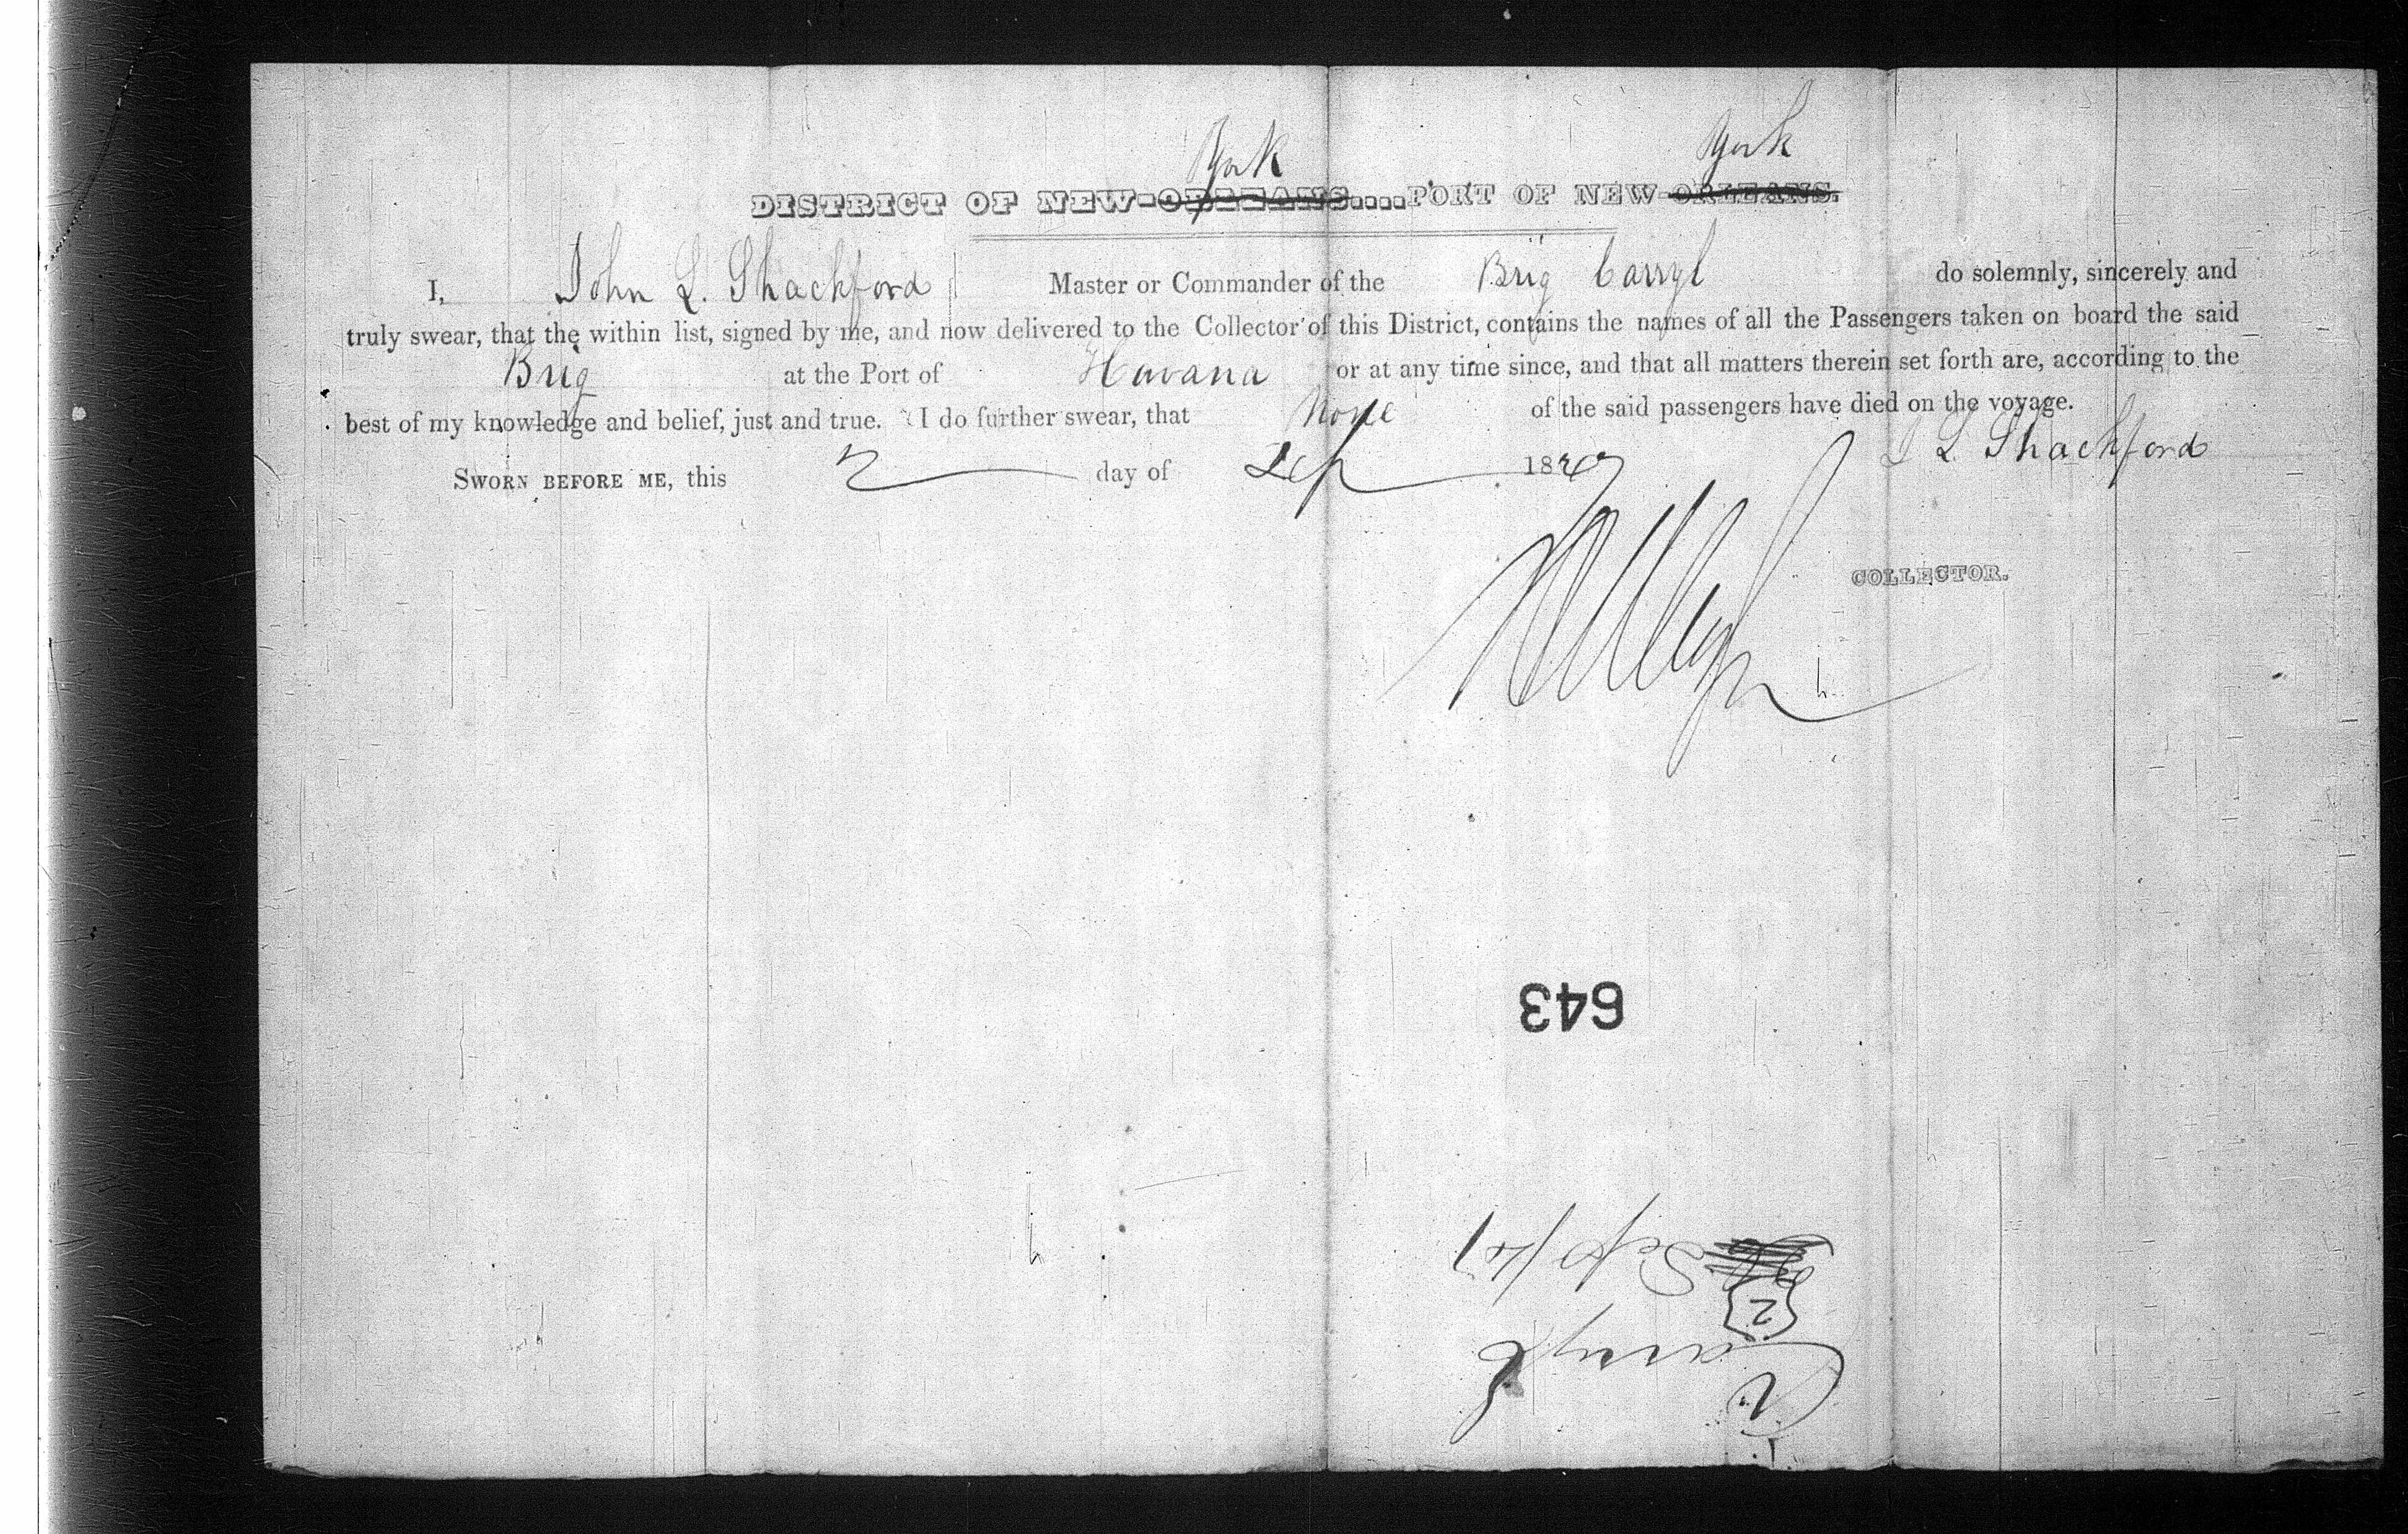 York York
DISTRICT OF NEW-ORLEANS....PORT OF NEW-ORLEANS.
I, John L. Shackford Master or Commander of the Brig Carryl do solemnly, sincerely and
truly swear, that the within list, signed by me, and now delivered to the Collector of this District, contains the names of all the Passengers taken on board the said
Brig at the Port of Havana or at any time since, and that all matters therein set forth are, according to the
best of my knowledge and belief, just and true. I do further swear, that None of the said passengers have died on the voyage.
J L Shackford
SWORN BEFORE ME, this 2 day of Sep 1847
COLLECTOR.
643
Sep /47
2
Carryl